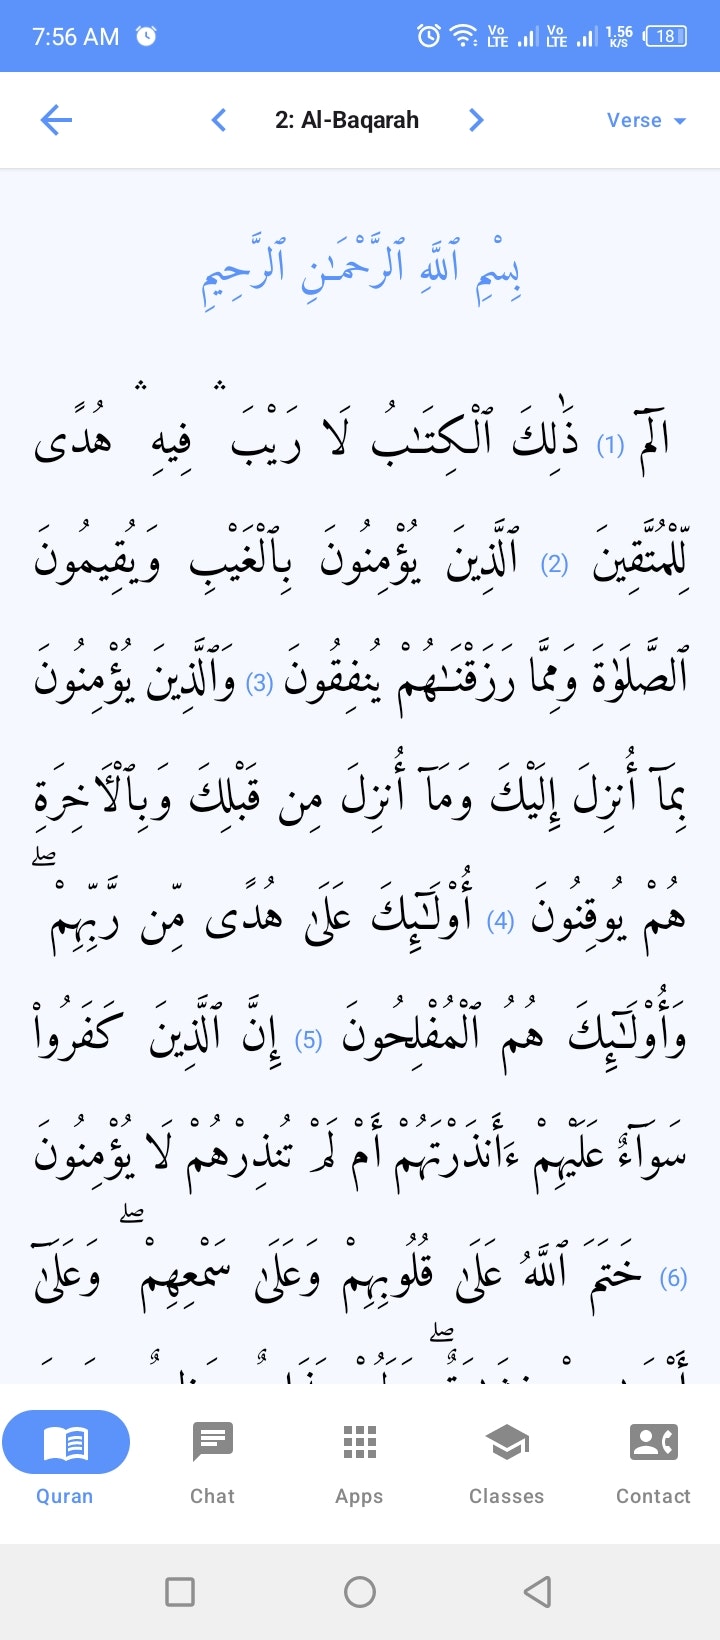 7:56 AM
Vo LTE Vo LTE 1.56 K/S 18
2: Al-Baqarah
Verse
بِسْمِ ٱللَّهِ ٱلرَّحْمَـٰنِ ٱلرَّحِيمِ
الٓمٓ (1) ذَٰلِكَ ٱلْكِتَـٰبُ لَا رَيْبَ ۛ فِيهِ ۛ هُدًى
لِّلْمُتَّقِينَ (2) ٱلَّذِينَ يُؤْمِنُونَ بِٱلْغَيْبِ وَيُقِيمُونَ
ٱلصَّلَوٰةَ وَمِمَّا رَزَقْنَـٰهُمْ يُنفِقُونَ (3) وَٱلَّذِينَ يُؤْمِنُونَ
بِمَآ أُنزِلَ إِلَيْكَ وَمَآ أُنزِلَ مِن قَبْلِكَ وَبِٱلْـَٔاخِرَةِ
هُمْ يُوقِنُونَ (4) أُو۟لَـٰٓئِكَ عَلَىٰ هُدًى مِّن رَّبِّهِمْ ۖ
وَأُو۟لَـٰٓئِكَ هُمُ ٱلْمُفْلِحُونَ (5) إِنَّ ٱلَّذِينَ كَفَرُوا۟
سَوَآءٌ عَلَيْهِمْ ءَأَنذَرْتَهُمْ أَمْ لَمْ تُنذِرْهُمْ لَا يُؤْمِنُونَ
(6) خَتَمَ ٱللَّهُ عَلَىٰ قُلُوبِهِمْ وَعَلَىٰ سَمْعِهِمْ ۖ وَعَلَىٰٓ
Quran
Chat
Apps
Classes
Contact